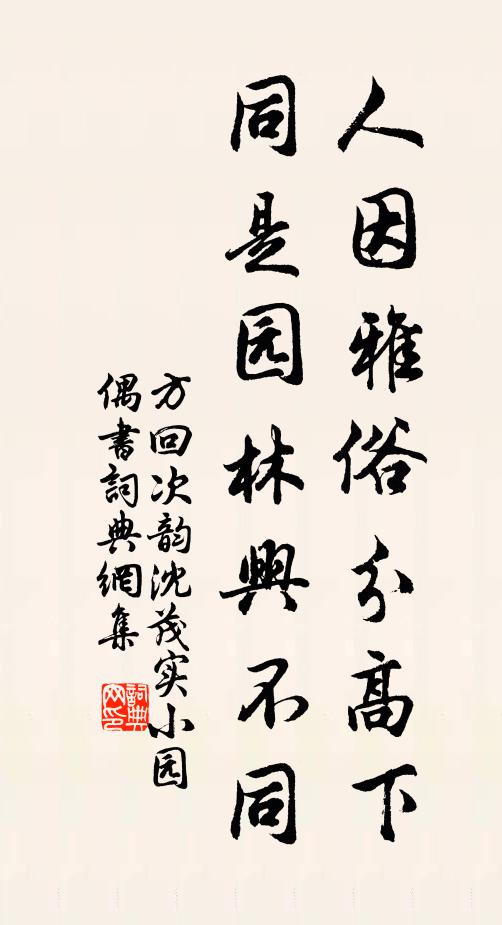 人因雅俗分高下
同是园林興不同
方回次韵沈茂实小园
偶書詞典網集
詞典网印